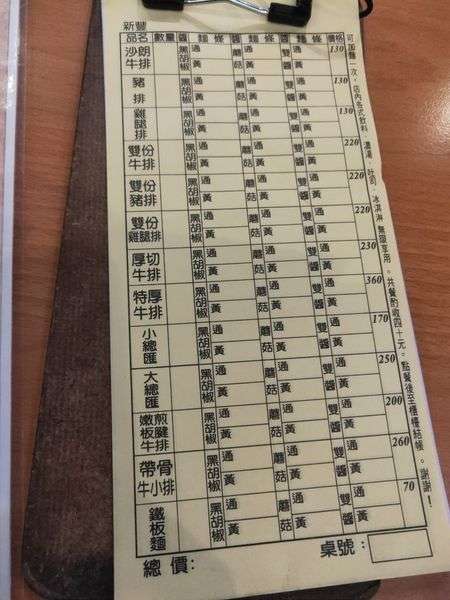 新豐
品名 數量 醬 麵條 醬 麵條 醬 麵條 價格
沙朗牛排 黑胡椒 通 黃 蘑菇 通 黃 雙醬 通 黃 130
豬排 黑胡椒 通 黃 蘑菇 通 黃 雙醬 通 黃 130
雞腿排 黑胡椒 通 黃 蘑菇 通 黃 雙醬 通 黃 130
雙份牛排 黑胡椒 通 黃 蘑菇 通 黃 雙醬 通 黃 220
雙份豬排 黑胡椒 通 黃 蘑菇 通 黃 雙醬 通 黃 220
雙份雞腿排 黑胡椒 通 黃 蘑菇 通 黃 雙醬 通 黃 220
厚切牛排 黑胡椒 通 黃 蘑菇 通 黃 雙醬 通 黃 230
特厚牛排 黑胡椒 通 黃 蘑菇 通 黃 雙醬 通 黃 360
小總匯 黑胡椒 通 黃 蘑菇 通 黃 雙醬 通 黃 170
大總匯 黑胡椒 通 黃 蘑菇 通 黃 雙醬 通 黃 250
嫩煎板腱牛排 黑胡椒 通 黃 蘑菇 通 黃 雙醬 通 黃 200
帶骨牛小排 黑胡椒 通 黃 蘑菇 通 黃 雙醬 通 黃 260
鐵板麵 黑胡椒 通 黃 蘑菇 通 黃 雙醬 通 黃 70
總價: 桌號:
可加麵一次，店內各式飲料、濃湯、吐司、冰淇淋 無限享用。共餐酌收四十元。點餐後至櫃檯結帳。謝謝!